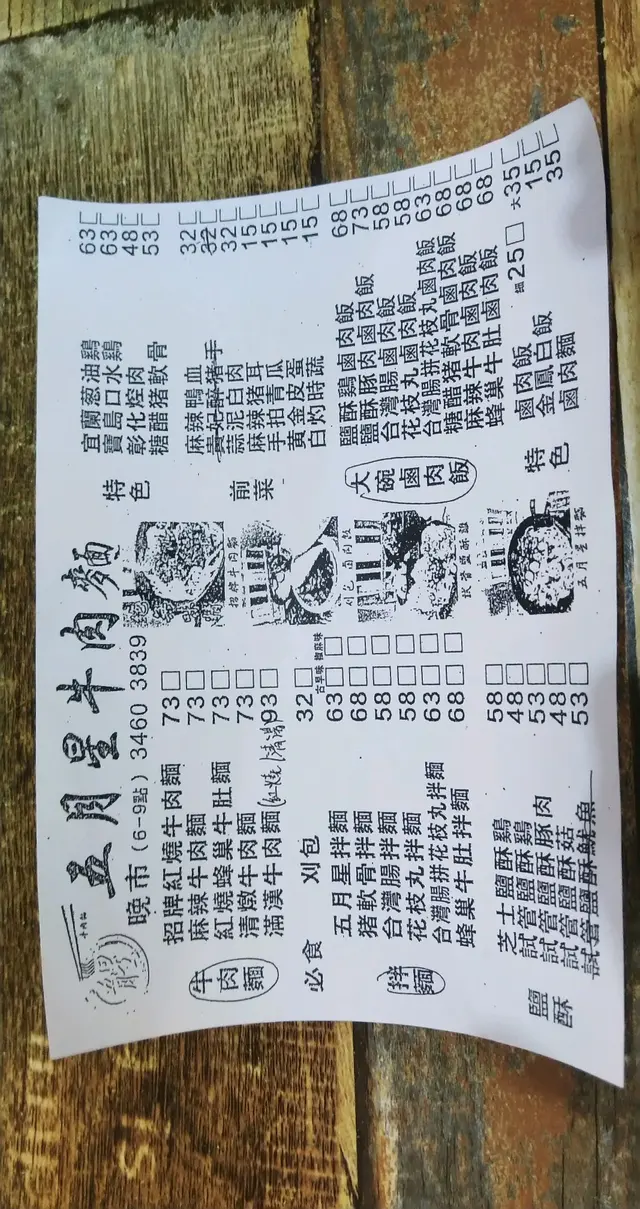 五月星牛肉麵
晚市(6-9點) 3460 3839
牛肉麵
招牌紅燒牛肉麵 73□
麻辣牛肉麵 73□
紅燒蜂巢牛肚麵 73□
清燉牛肉麵 73□
滿漢牛肉麵(紅燒/清湯) 93□
必食
刈包 32□
古早味 椒麻味
拌麵
五月星拌麵 63□□
猪軟骨拌麵 68□□
台灣腸拌麵 58□□
花枝丸拌麵 58□□
台灣腸拼花枝丸拌麵 63□□
蜂巢牛肚拌麵 68□□
鹽酥
芝士鹽酥鷄 58□
試管鹽酥鷄 48□
試管鹽酥豚肉 53□
試管鹽酥菇 48□
試管鹽酥魷魚 53□
招牌牛肉麵
五月星拌麵
特色
宜蘭葱油鷄 63□
寶島口水鷄 63□
彰化焢肉 48□
糖醋猪軟骨 53□
前菜
麻辣鴨血 32□
貴妃醉猪手 32□
蒜泥白肉 32□
麻辣猪耳 15□
手拍青瓜 15□
黃金皮蛋 15□
白灼時蔬 15□
大碗鹵肉飯
鹽酥鷄鹵肉飯 68□
鹽酥豚肉鹵肉飯 73□
台灣腸鹵肉飯 58□
花枝丸鹵肉飯 58□
台灣腸拼花枝丸鹵肉飯 63□
糖醋猪軟骨鹵肉飯 68□
麻辣牛肉鹵肉飯 68□
蜂巢牛肚鹵肉飯 68□
特色
鹵肉飯 細25□ 大35□
金鳳白飯 15□
鹵肉麵 35□